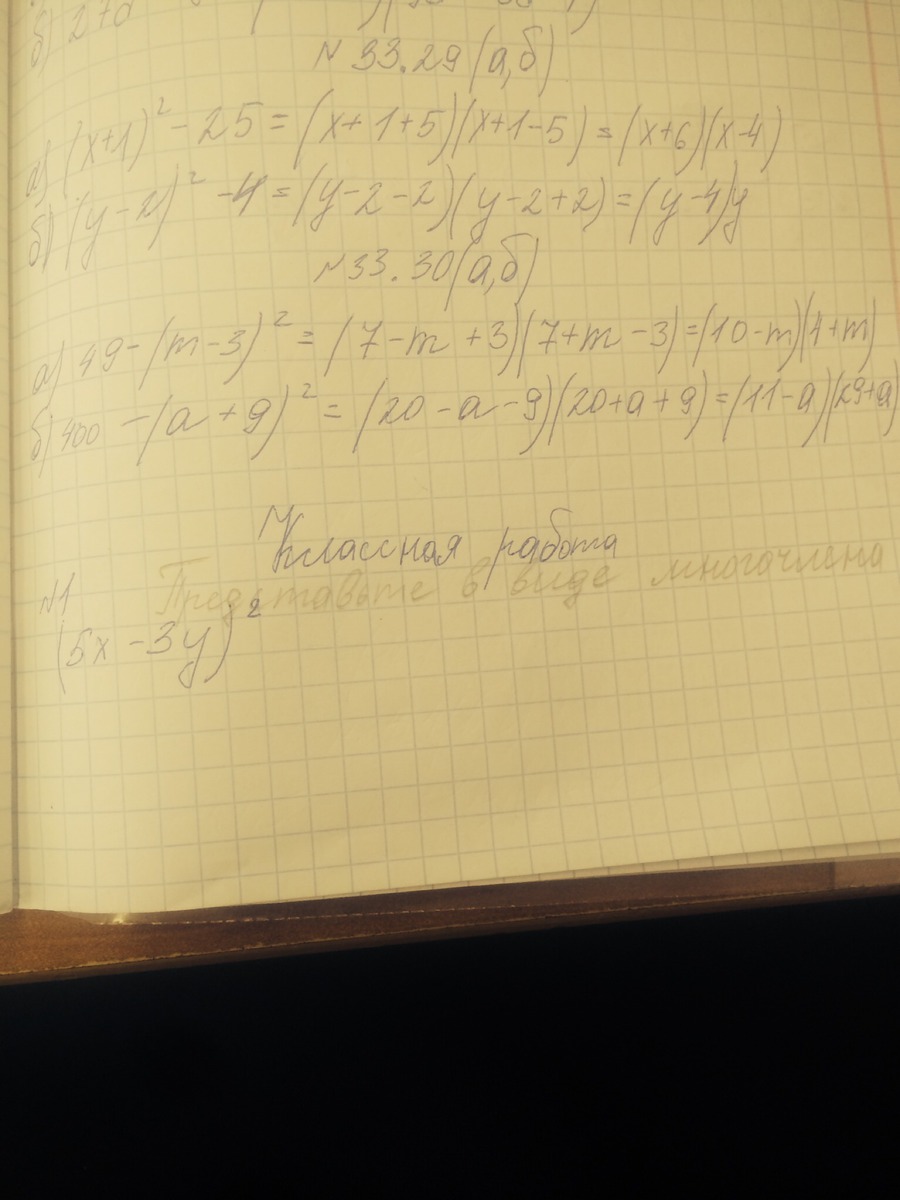 б) 2+a
N 33.29 (а,б)
а) (x+1)² - 25 = (x+1+5)(x+1-5) = (x+6)(x-4)
б) (y-2)² - 4 = (y-2-2)(y-2+2) = (y-4)y
N33.30(а,б)
а) 49-(m-3)² = (7-m+3)(7+m-3)=(10-m)(4+m)
б) 400 -(a+9)² = (20-a-9)(20+a+9)=(11-a)(29+a)
Классная работа
N1 Представьте в виде многочлена
(5x-3y)²